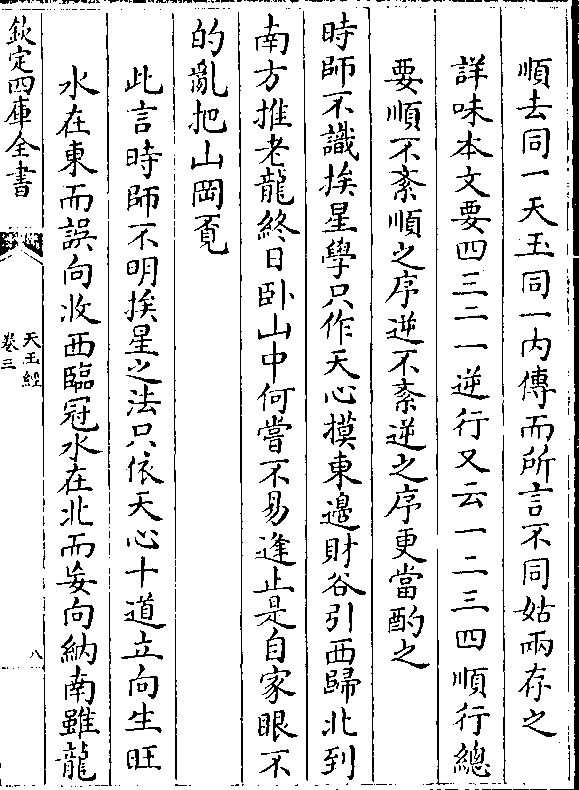 順去同一天玉同一內傳而所言不同姑兩存之
詳味本文要四三二一逆行又云一二三四順行總
要順不紊順之序逆不紊逆之序更當酌之
時師不識挨星學只作天心摸東邉財谷引西歸北到
南方推老龍終日卧山中何嘗不易逢止是自家眼不
的亂把山岡覔
此言時師不明挨星之法只依天心十道立向生旺
水在東而誤向收西臨冠水在北而妄向納南雖龍
欽定四庫全書
天玉經
卷三
八